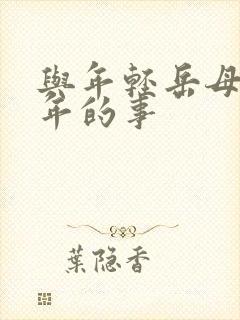 與年輕岳母
年的事
葉隐香